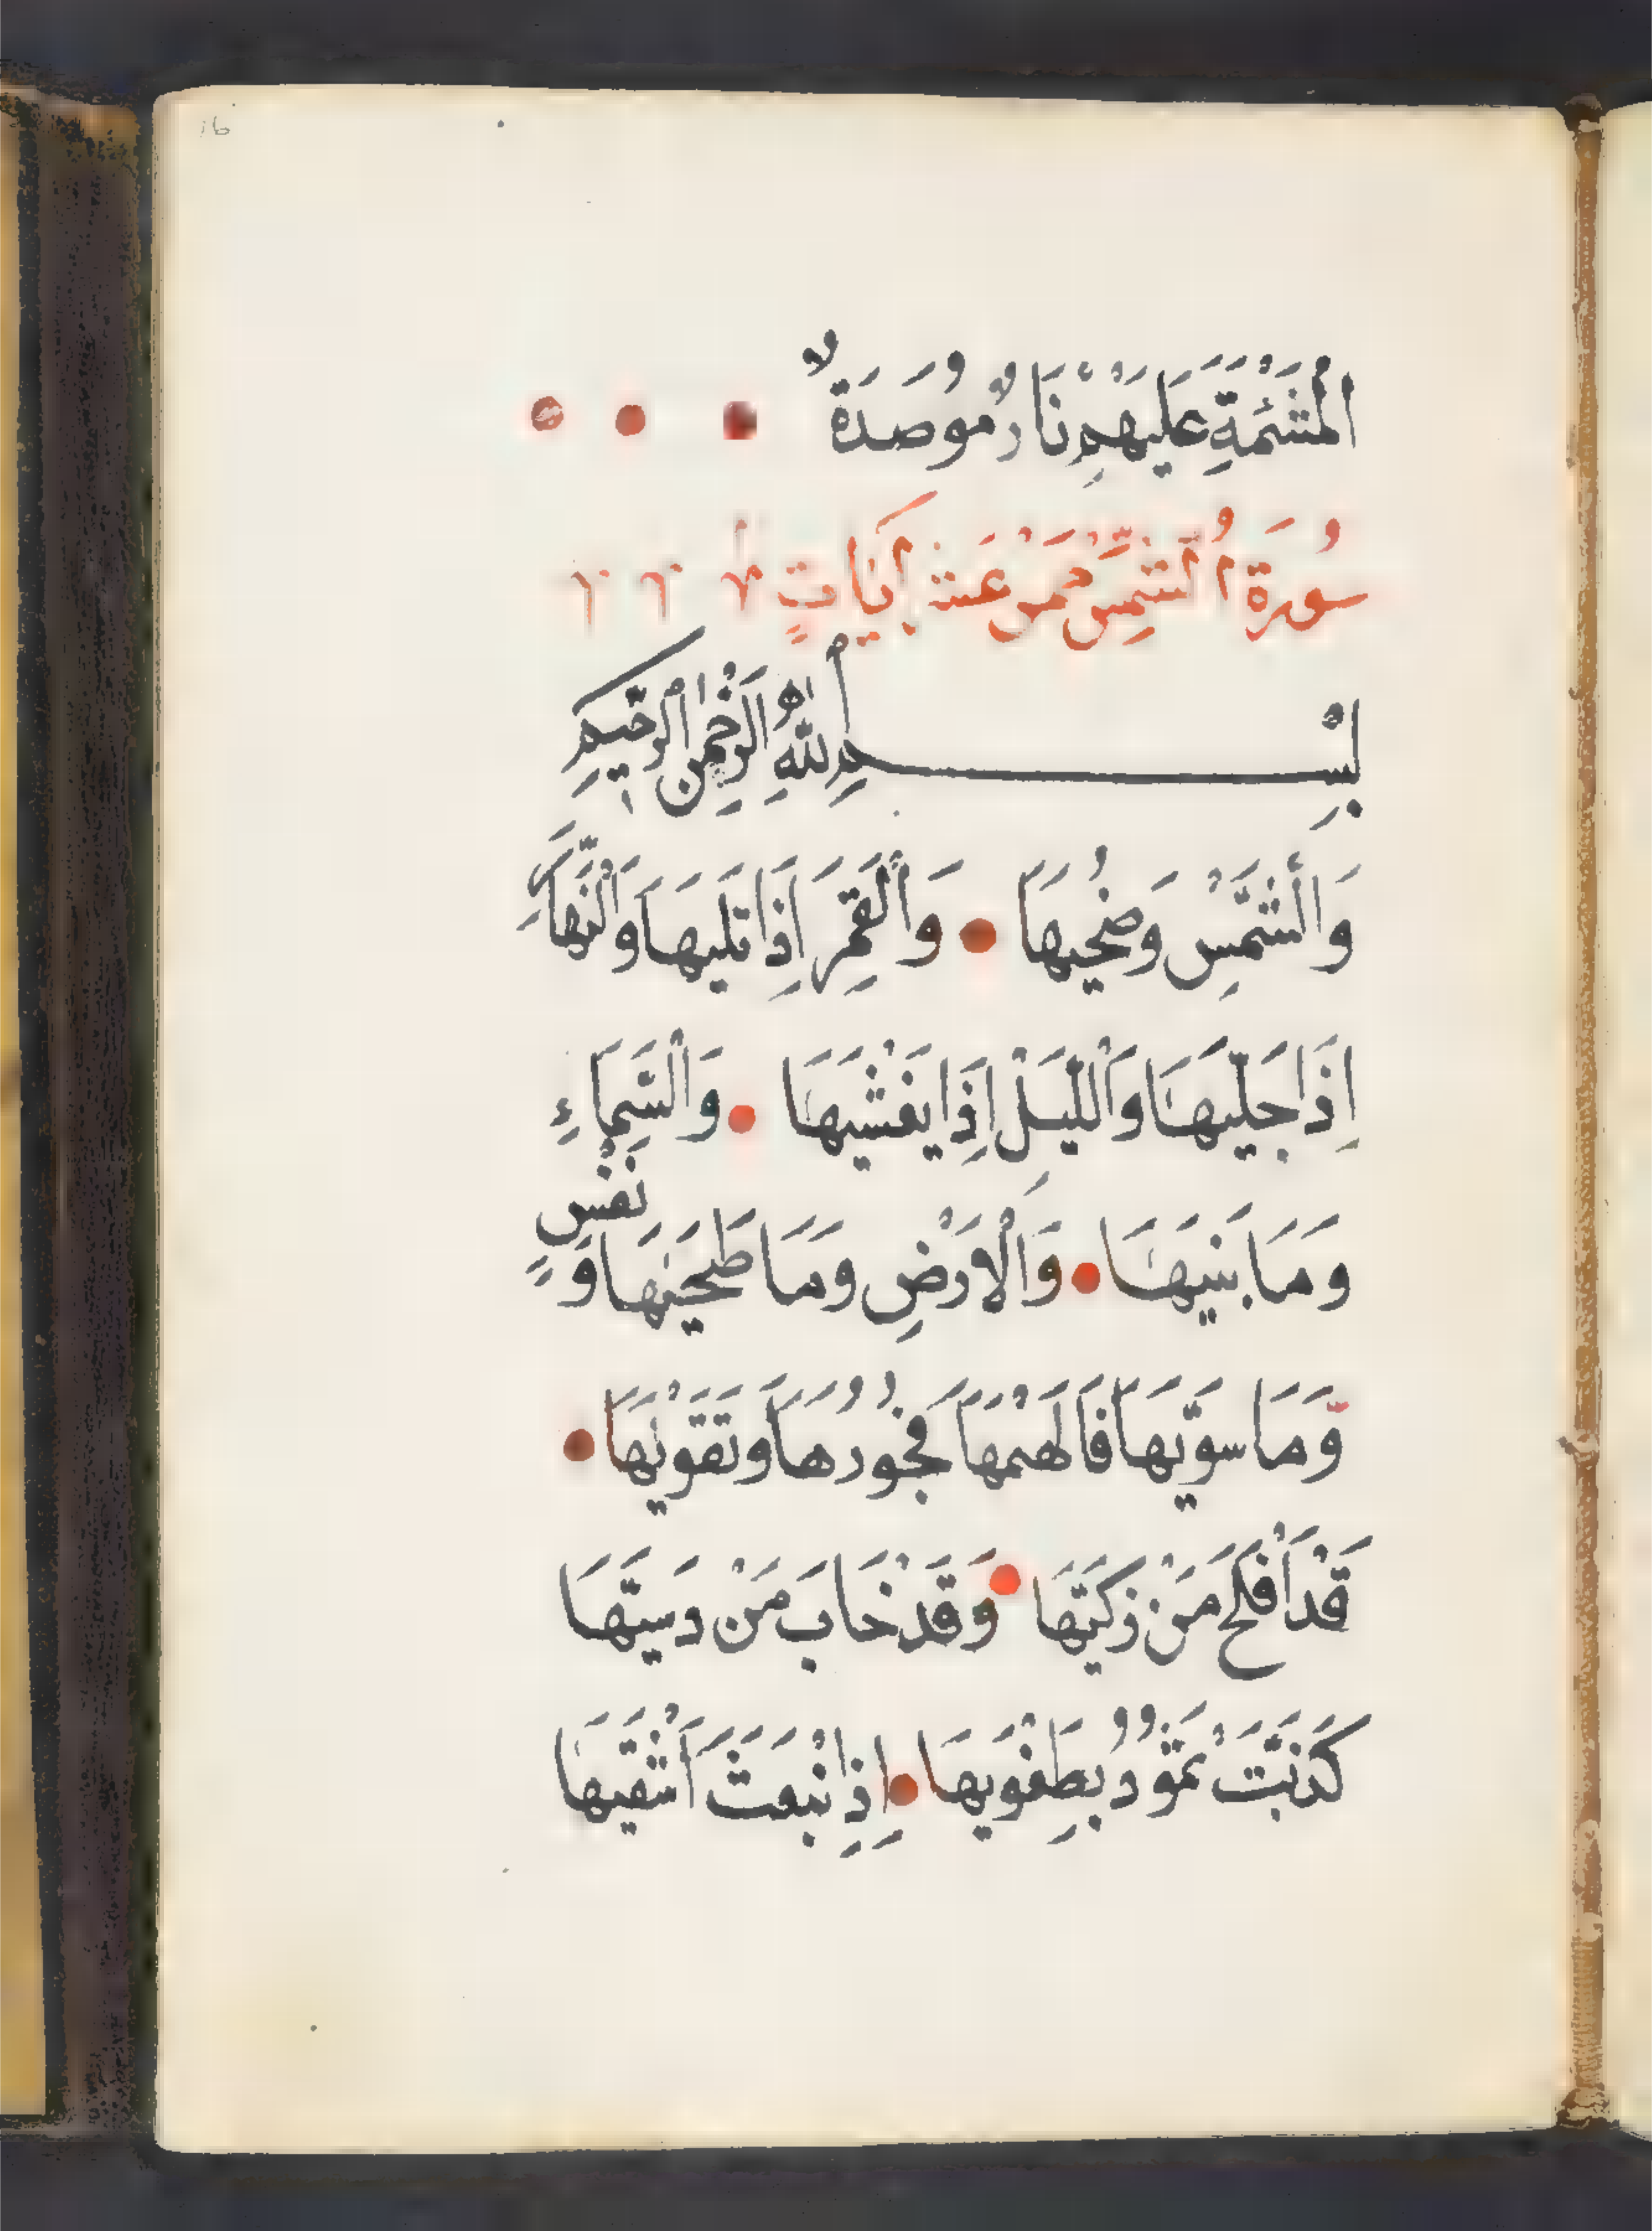 16
الْمَشْئَمَةِ عَلَيْهِمْ نَارٌ مُوصَدَةٌ
سُورَةُ الشَّمْسِ خَمْسَ عَشَرَ اٰيَاتٍ
بِسْمِ اللّٰهِ الرَّحْمٰنِ الرَّحِيمِ
وَالشَّمْسِ وَضُحٰيهَا وَالْقَمَرِ اِذَا تَلٰيهَا وَالنَّهَارِ
اِذَا جَلّٰيهَا وَاللَّيْلِ اِذَا يَغْشٰيهَا وَالسَّمَاءِ
وَمَا بَنٰيهَا وَالْاَرْضِ وَمَا طَحٰيهَا وَنَفْسٍ
وَّمَا سَوّٰيهَا فَاَلْهَمَهَا فُجُورَهَا وَتَقْوٰيهَا
قَدْ اَفْلَحَ مَنْ زَكّٰيهَا وَقَدْ خَابَ مَنْ دَسّٰيهَا
كَذَّبَتْ ثَمُودُ بِطَغْوٰيهَا اِذِ انْبَعَثَ اَشْقٰيهَا